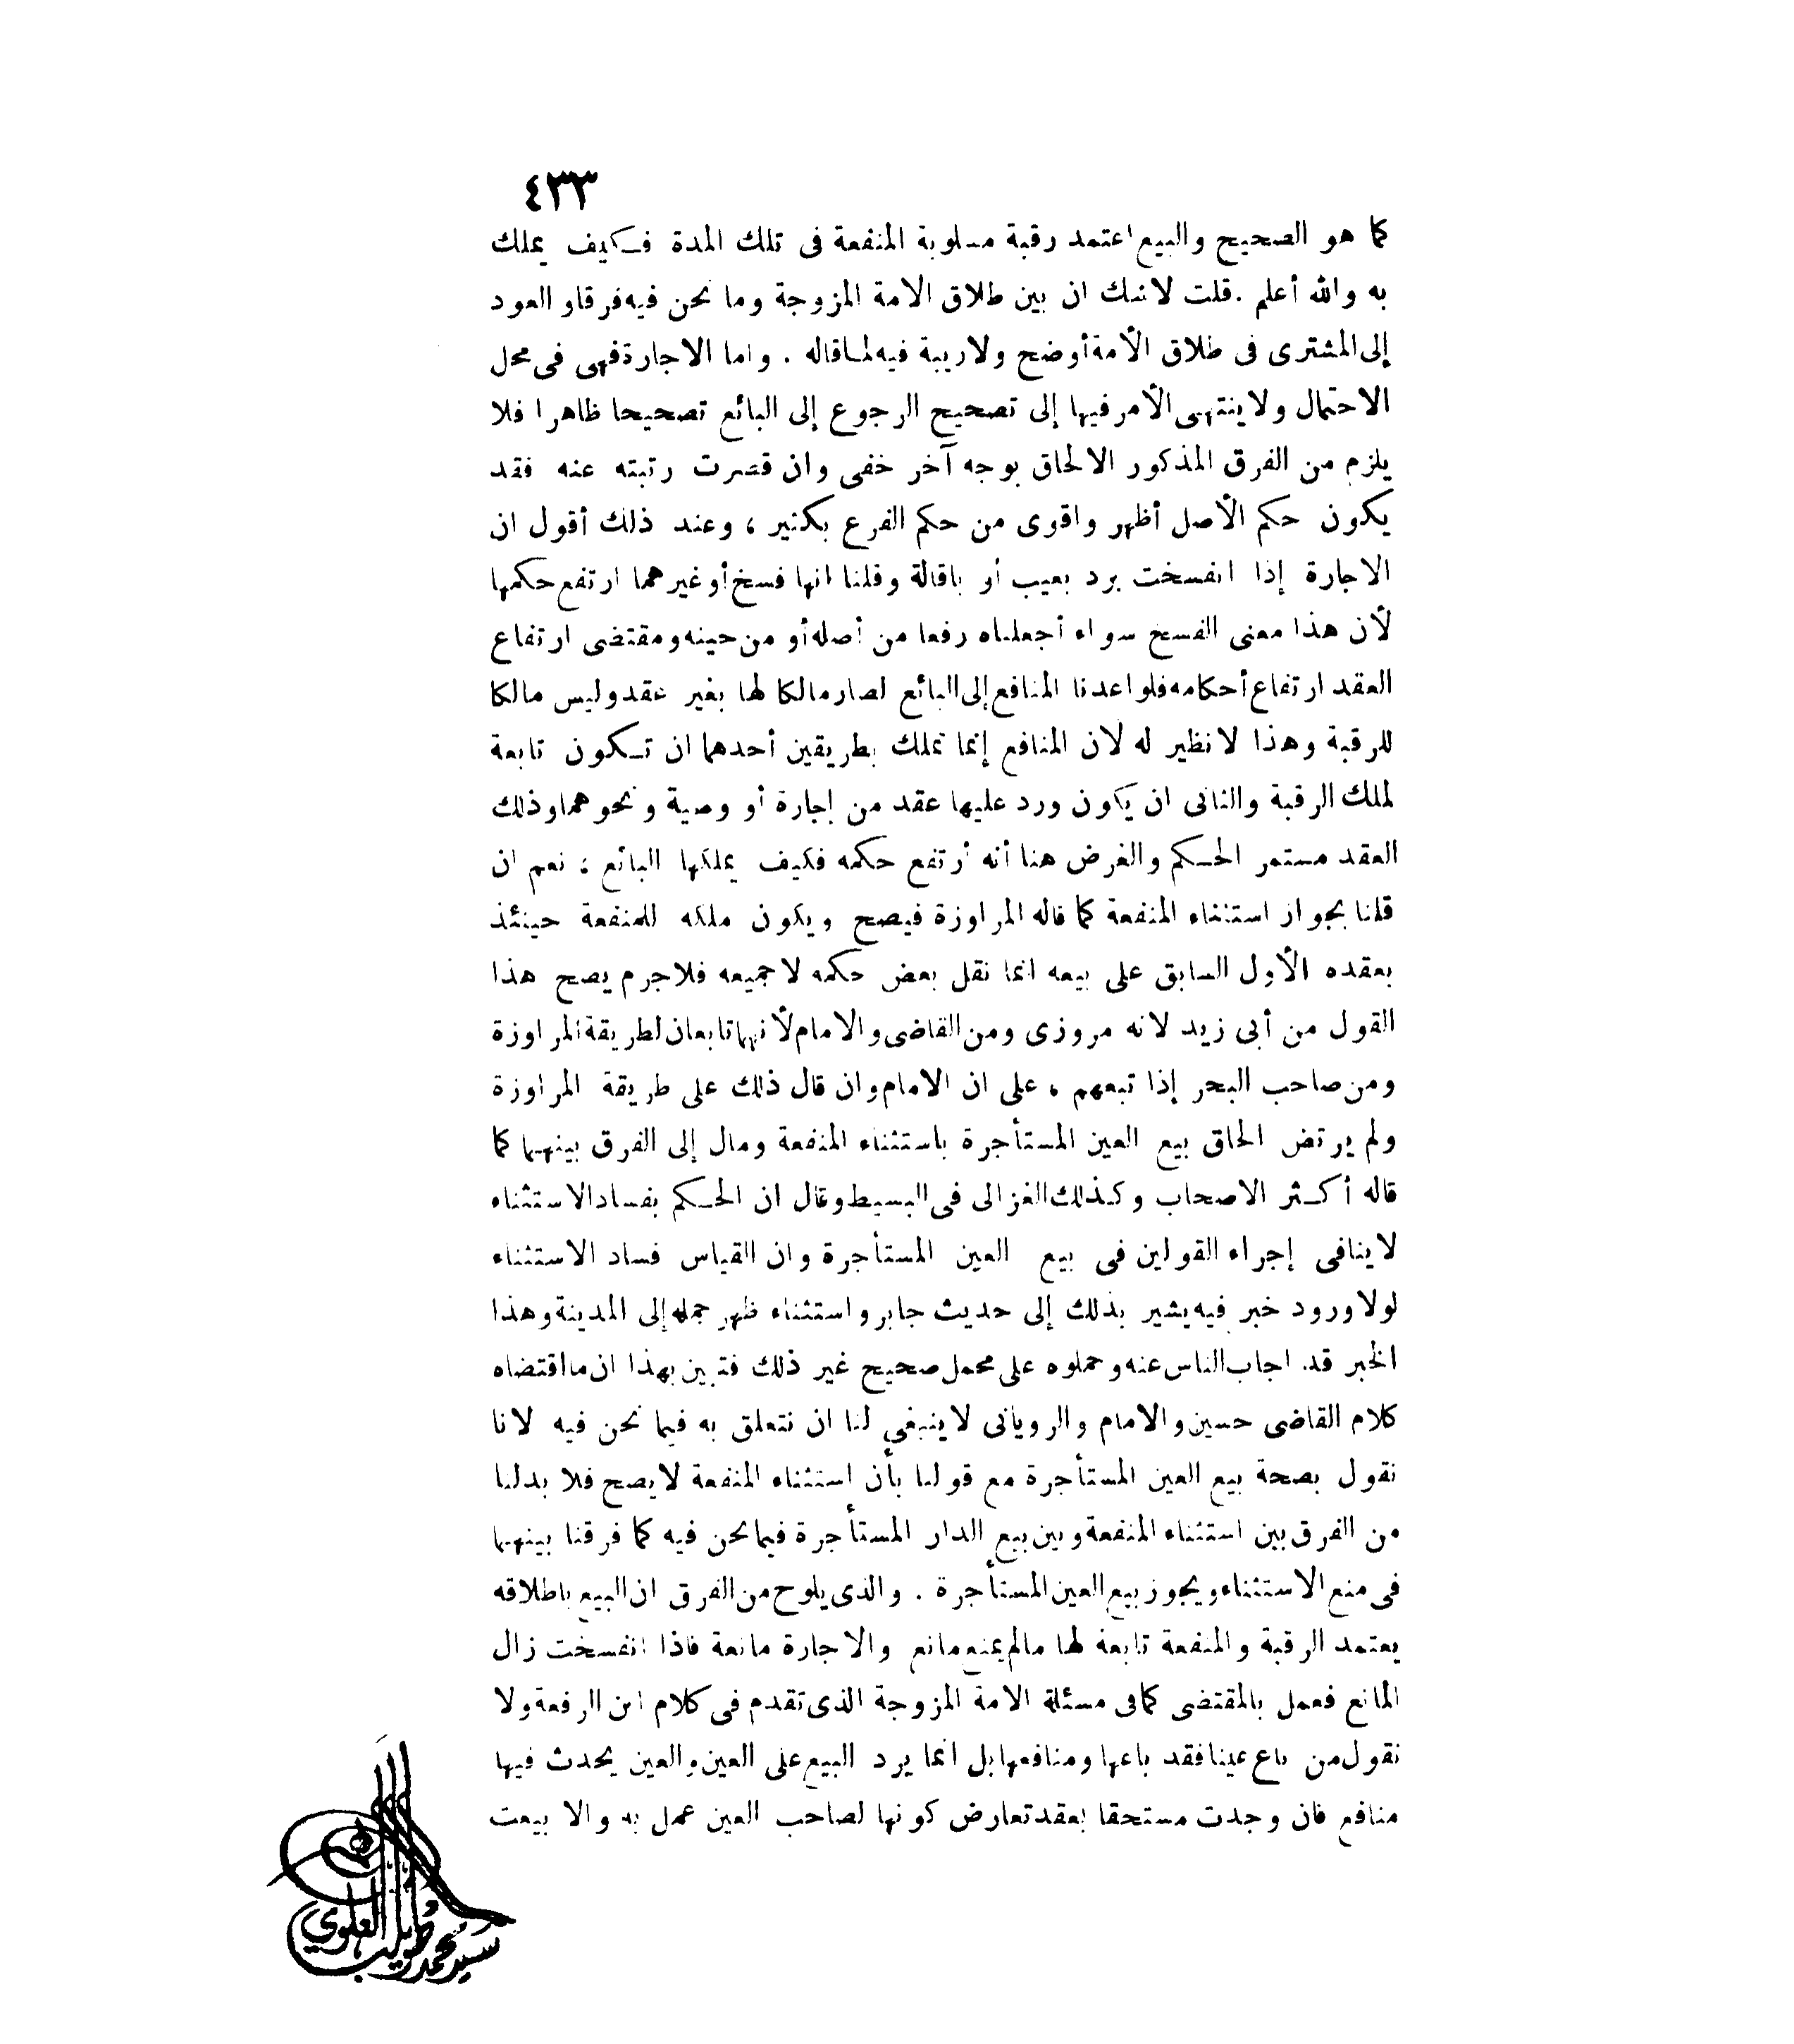 ٤٣٣
كما هو الصحيح والبيع اعتمد رقبة مسلوبة المنفعة فى تلك المدة فكيف يملك
به والله أعلم . قلت لاشك ان بين طلاق الامة المزوجة وما نحن فيه فرقا والعود
إلى المشترى فى طلاق الأمة أوضح ولاريبة فيه لماقاله . واما الاجارة فهى فى محل
الاحتمال ولا ينتهى الأمر فيها إلى تصحيح الرجوع إلى البائع تصحيحا ظاهرا فلا
يلزم من الفرق المذكور الالحاق بوجه آخر خفى وان قصرت رتبته عنه فقد
يكون حكم الأصل أظهر واقوى من حكم الفرع بكثير ، وعند ذلك أقول ان
الاجارة إذا انفسخت برد بعيب أو باقالة وقلنا انها فسخ أو غيرهما ارتفع حكمها
لأن هذا معنى الفسخ سواء أجعلناه رفعا من أصله أو من حينه ومقتضى ارتفاع
العقد ارتفاع أحكامه فلو اعدنا المنافع إلى البائع لصار مالكا لها بغير عقد وليس مالكا
للرقبة وهذا لا نظير له لان المنافع إنما تملك بطريقين أحدهما ان تكون تابعة
لملك الرقبة والثانى ان يكون ورد عليها عقد من إجارة أو وصية ونحوهما وذلك
العقد مستمر الحكم والغرض هنا أنه ارتفع حكمه فكيف يملكها البائع ؛ نعم ان
قلنا بجواز استثناء المنفعة كما قاله المراوزة فيصح ويكون ملكه للمنفعة حينئذ
بعقده الأول السابق على بيعه انما نقل بعض حكمه لا جميعه فلا جرم يصح هذا
القول من أبى زيد لانه مروزى ومن القاضى والامام لأنهما تابعان لطريقة المراوزة
ومن صاحب البحر إذا تبعهم ، على ان الامام وان قال ذلك على طريقة المراوزة
ولم يرتض الحاق بيع العين المستأجرة باستثناء المنفعة ومال إلى الفرق بينهما كما
قاله أكثر الاصحاب وكذلك الغزالى فى البسيط وقال ان الحكم بفساد الاستثناء
لا ينافى إجراء القولين فى بيع العين المستأجرة وان القياس فساد الاستثناء
لولا ورود خبر فيه يشير بذلك إلى حديث جابر واستثناء ظهر جمله إلى المدينة وهذا
الخبر قد. اجاب الناس عنه وحملوه على محمل صحيح غير ذلك فتبين بهذا ان ما اقتضاه
كلام القاضى حسين والامام والرويانى لا ينبغى لنا ان نتعلق به فيما نحن فيه لانا
نقول بصحة بيع العين المستأجرة مع قولنا بأن استثناء المنفعة لا يصح فلا بد لنا
من الفرق بين استثناء المنفعة وبين بيع الدار المستأجرة فيما نحن فيه كما فرقنا بينهما
فى منع الاستثناء ويجوز بيع العين المستأجرة . والذى يلوح من الفرق ان البيع باطلاقه
يعتمد الرقبة والمنفعة تابعة لها مالم يمنع مانع والاجارة مانعة فاذا انفسخت زال
المانع فعمل بالمقتضى كما فى مسئلة الامة المزوجة الذى تقدم فى كلام ابن الرفعة ولا
نقول من باع عينا فقد باعها ومنافعها بل انما يرد البيع على العين والعين يحدث فيها
منافع فان وجدت مستحقا بعقد تعارض كونها لصاحب العين عمل به والا بيعت
سيد محمد طويلب العلوي